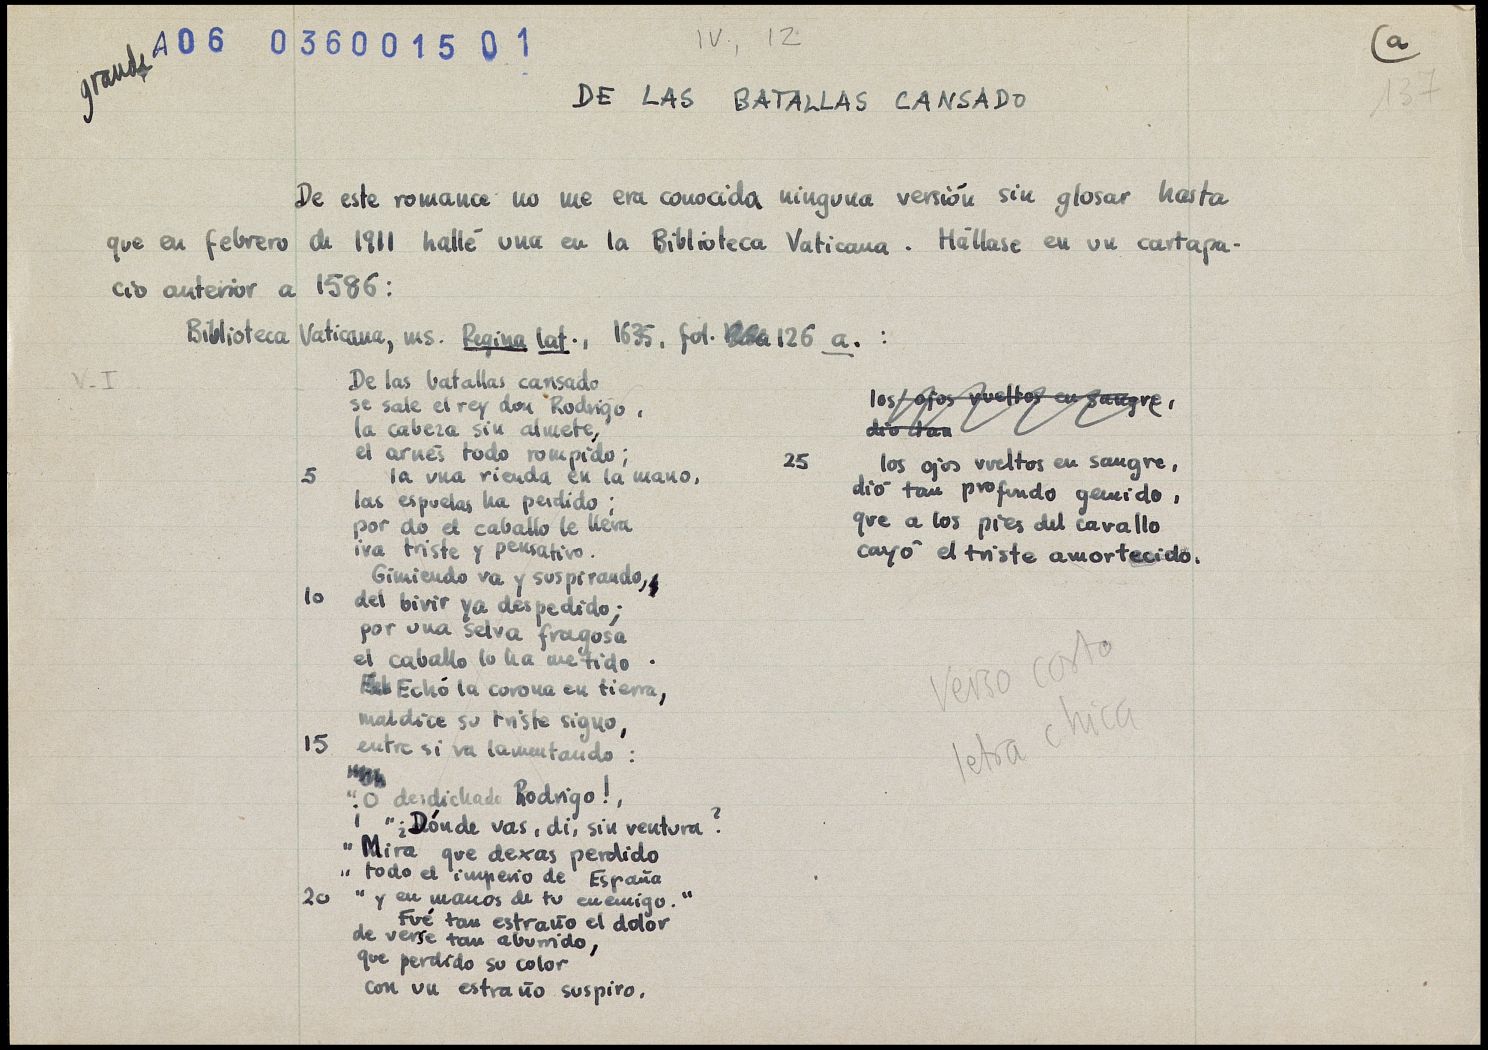 grande
A06 0360015 01
IV, 12
a
137
DE LAS BATALLAS CANSADO
De este romance no me era conocida ninguna versión sin glosar hasta
que en febrero de 1911 hallé una en la Biblioteca Vaticana. Hállase en un cartapa-
cio anterior a 1586:
Biblioteca Vaticana, ms. Regina lat., 1635, fol. 126 a. :
V-I
De las batallas cansado
se sale el rey don Rodrigo,
la cabeza sin almete,
el arnés todo rompido;
5 la una rienda en la mano,
las espuelas ha perdido;
por do el caballo le lleva
iva triste y pensativo.
Gimiendo va y suspirando,
10 del bivir ya despedido;
por una selva fragosa
el caballo lo ha metido.
Echó la corona en tierra,
maldice su triste signo,
15 entre si va lamentando:
"¡O desdichado Rodrigo!,
"¿Dónde vas, di, sin ventura?
"Mira que dexas perdido
"todo el imperio de España
20 "y en manos de tu enemigo."
Fué tan estraño el dolor
de verse tan aburrido,
que perdido su color
con un estraño suspiro.
los ojos vueltos en sangre,
dió tan
25 los ojos vueltos en sangre,
dió tan profundo gemido,
que a los pies del cavallo
cayó el triste amortecido.
verso corto
letra chica